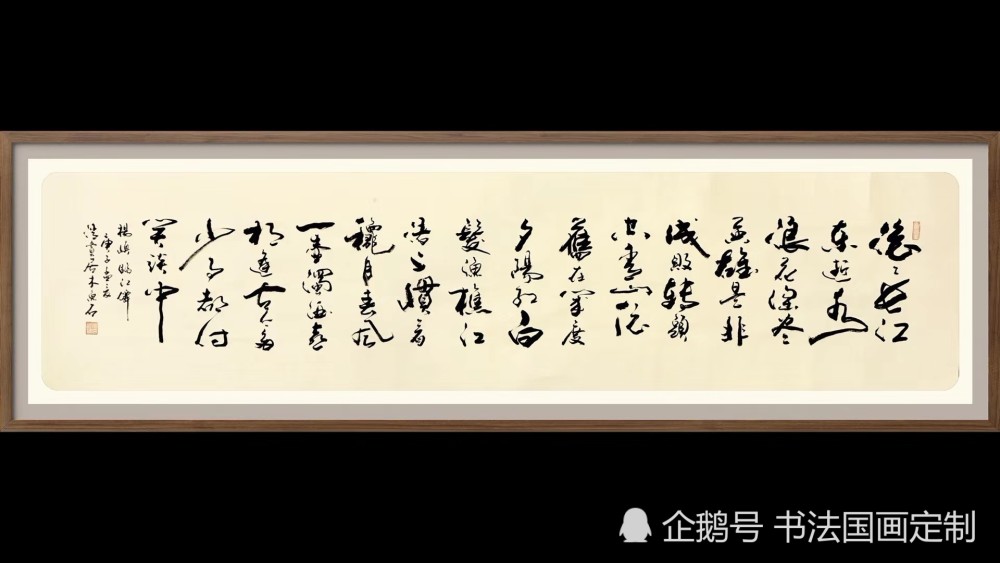 滚滚长江
东逝水
浪花淘尽
英雄是非
成败转頭
空青山依
舊在几度
夕陽红白
髮漁樵江
渚上惯看
穐月春风
一壶濁酒喜
相逢古今多
少事都付
笑谈中
楊慎临江仙
庚子
企鹅号 书法国画定制